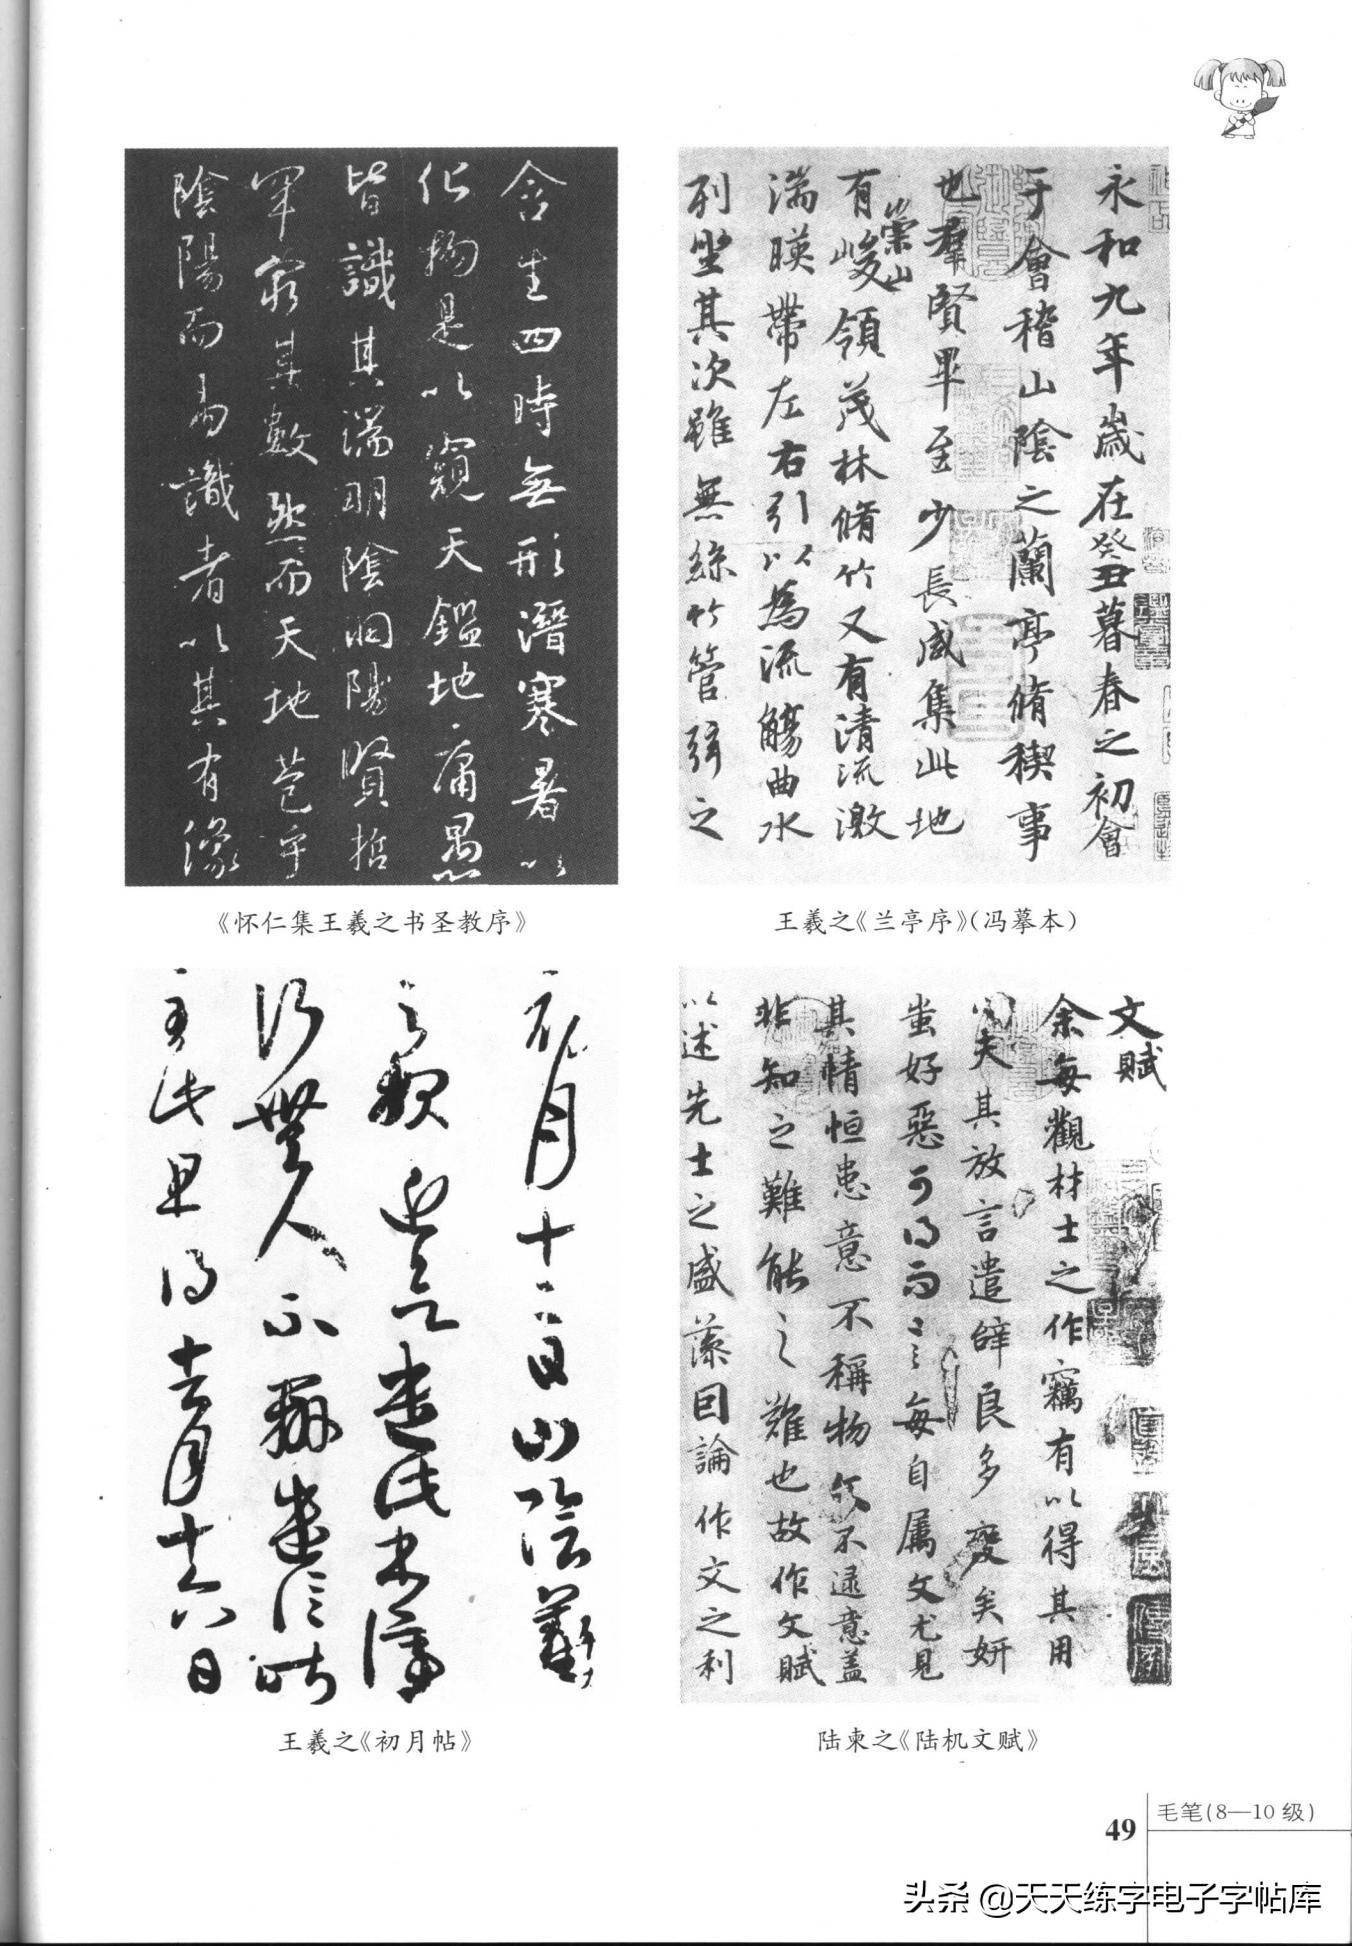 含生四時無形潛寒暑以
化物是以窺天鑑地庸愚
皆識其端明陰洞陽賢哲
罕窮其數然而天地苞乎
陰陽而易識者以其有像
《怀仁集王羲之书圣教序》
永和九年歲在癸丑暮春之初會
于會稽山陰之蘭亭脩稧事
也羣賢畢至少長咸集此地
有崇山峻領茂林脩竹又有清流激
湍暎帶左右引以為流觴曲水
列坐其次雖無絲竹管弦之
王羲之《兰亭序》(冯摹本)
初月十二日山陰羲
之報近欲遣此書濟
行無人不辦遣信昨
至此且得去月十六日
王羲之《初月帖》
文賦
余每觀材士之作竊有以得其用
心夫其放言遣辭良多變矣妍
蚩好惡可得而言每自属文尤見
其情恒患意不稱物文不逮意盖
非知之難能之難也故作文賦
以述先士之盛藻因論作文之利
陆柬之《陆机文赋》
毛笔(8—10级)
49
头条 @天天练字电子字帖库